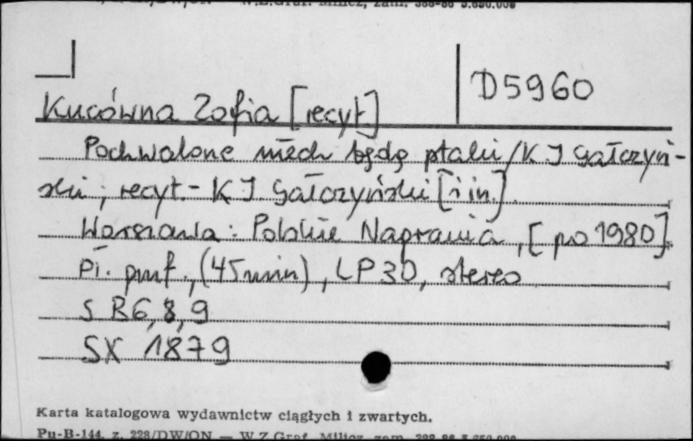 W.Z.Graf. Milicz, zam. 388-86 5.650.000
D5960
Kucówna Zofia [recyt.]
Pochwalone niech będą ptaki / K J Gałczyń-
ski ; recyt. - K J. Gałczyński [i in.].
Warszawa : Polskie Nagrania, [po 1980].
Pł. gramf., (45 min), LP 30, stereo
S B6, 8, 9
SX 1879
Karta katalogowa wydawnictw ciągłych i zwartych.
Pu-B-144, z. 228/DW/ON — W.Z.Graf. Milicz, zam. 388-86 5.650.000